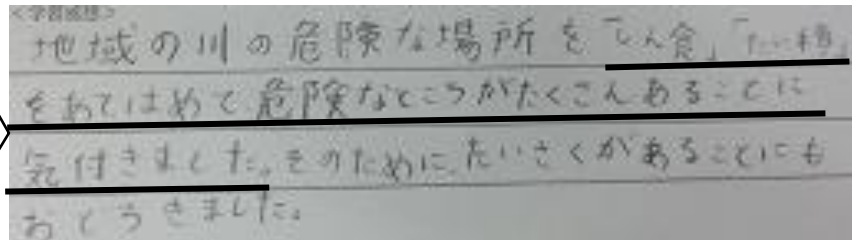 <学習感想>
地域の川の危険な場所を「しん食」「たい積」
をあてはめて危険なところがたくさんあることに
気付きました。そのために、たいさくがあることにも
おどろきました。